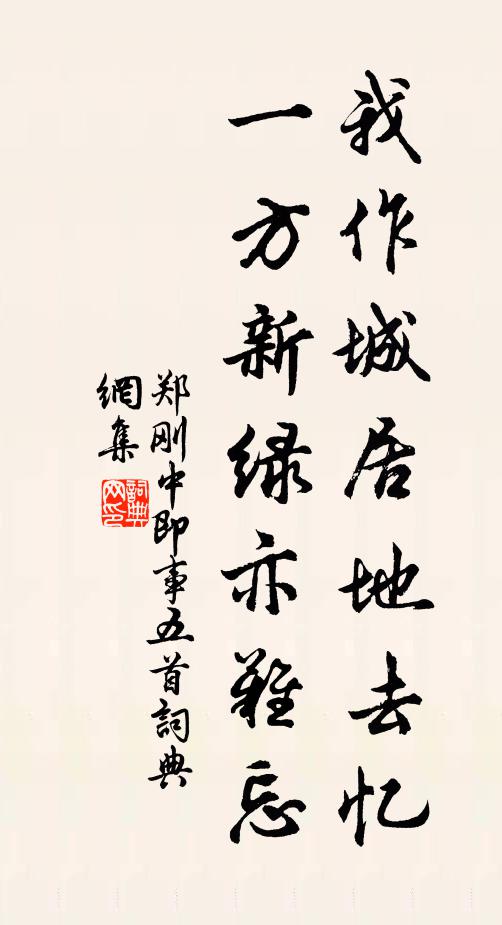 我作城居地去忆
一方新绿亦难忘
郑刚中即事五首詞典
網集
詞典
网印